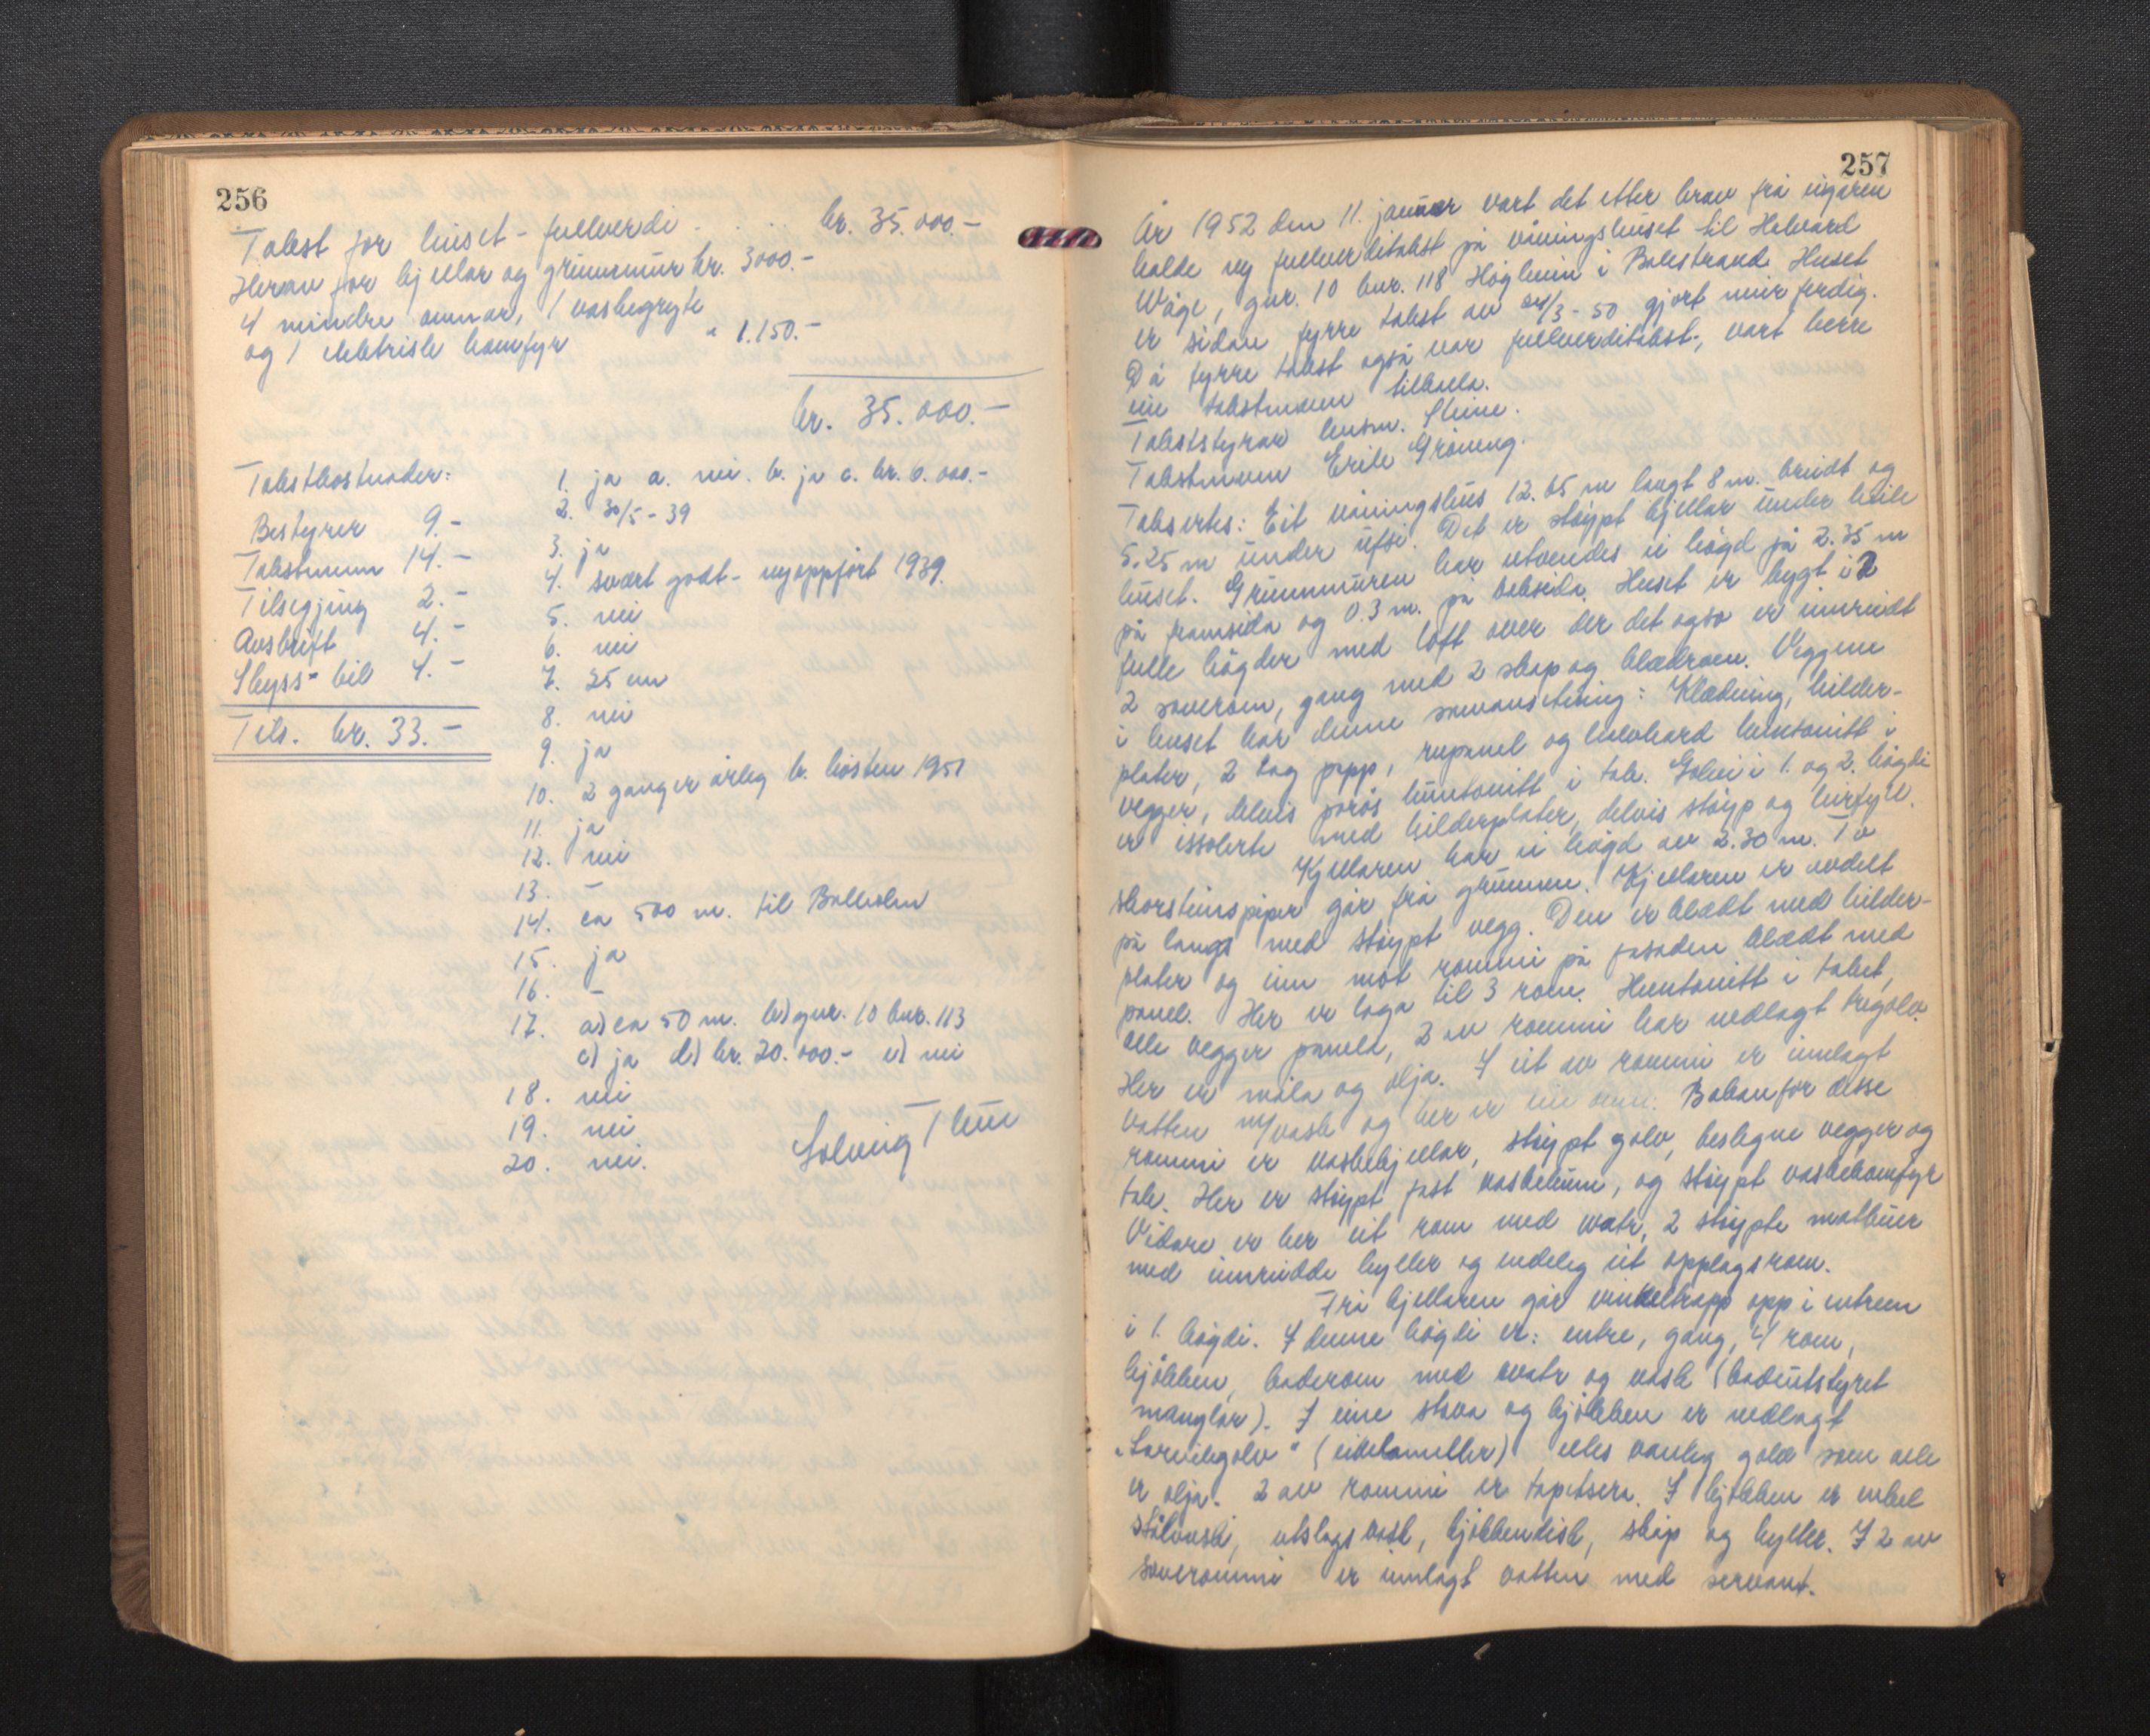 256
Takst for huset - fullverdi . . . . kr. 35.000.-
Herav for kjellar og grunnmur kr. 3000.-
4 mindre omnar, 1 vaskegryte
og 1 elektrisk komfyr " 1.150.-
kr. 35.000.-
Takstkostnader:
Bestyrer 9.-
Takstmenn 14.-
Tilsegjing 2.-
Avskrift 4.-
Skyss - bil 4.-
Tils. kr. 33.-
1. ja a. nei. b. ja c. kr. 6.000.-
2. 30/5 - 39
3. ja
4. svært godt - nyoppført 1939.
5. nei
6. nei
7. 25 cm
8. nei
9. ja
10. 2 ganger årleg b. hösten 1951
11. ja
12. nei
13. -
14. ca 500 m. til Balholm
15. ja
16. -
17. a) ca 50 m. b) gnr. 10 bnr. 113
c) ja d) kr. 20.000.- e) nei
18. nei
19. nei
20. nei.
Solveig
257
År 1952 den 11. januar vart det etter krav frå eigaren
halde ny fullverditakst på våningshuset til Halvard
Våge, gnr. 10 bnr. 118 Högheim i Balestrand. Huset
er sidan fyrre takst av 24/3 - 50 gjort meir ferdig.
Då fyrre takst også var fullverditakst, vart berre
ein takstmann tilkalla.
Takststyrar lensm. Steine.
Takstmann Eirik Gröneng.
Taksertes: Eit våningshus 12.65 m langt 8 m. breidt og
5.25 m under ufsi. Det er stöypt kjellar under heile
huset. Grunnmuren har utvendes ei högd på 2.35 m
på framsida og 0.3 m. på baksida. Huset er bygt i 2
fulle högder med loft over der det også er innreidt
2 soverom, gang med 2 skap og klædrom. Veggene
i huset har denne samansetning: Klædning, hilder-
plater, 2 lag papp, rupanel og halvhard huntonitt i
vegger, delvis porös huntonitt i tak. Golvi i 1. og 2. högdi
er isolerte med hilderplater, delvis stöyp og leirfyll.
Kjellaren har ei högd av 2.30 m. To
skorsteinspiper går frå grunnen. Kjellaren er avdelt
på langs med stöypt vegg. Den er klædt med hilder-
plater og inn mot rommi på fasaden klædt med
panel. Her er laga til 3 rom. Huntonitt i taket,
alle vegger panela, 2 av rommi har nedlagt tregolv.
Her er måla og olja. I eit av rommi er innlagt
vatten m/vask og her er ein omn. Bakanfor disse
rommi er vaskekjellar, stöypt golv, beslegne vegger og
tak. Her er stöypt fast vaskekum, og stöypt vaskekomfyr
Vidare er her eit rom med watr, 2 stöypte matbuer
med innreidde hyller og endeleg eit opplagsrom.
Frå kjellaren går vinkeltrapp opp i entreen
i 1. högdi. I denne högdi er: entre, gang, 4 rom,
kjökken, baderom med watr og vask (badeutstyret
manglar). I eine stova og kjökken er nedlagt
"Larvikgolv" (eikelameller) elles vanleg golv som alle
er olja. 2 av rommi er tapetsera. I kjökken er enkel
stålvask, utslagsvask, kjökkendisk, skåp og hyller. I 2 av
soverommi er innlagt vatten med servant.